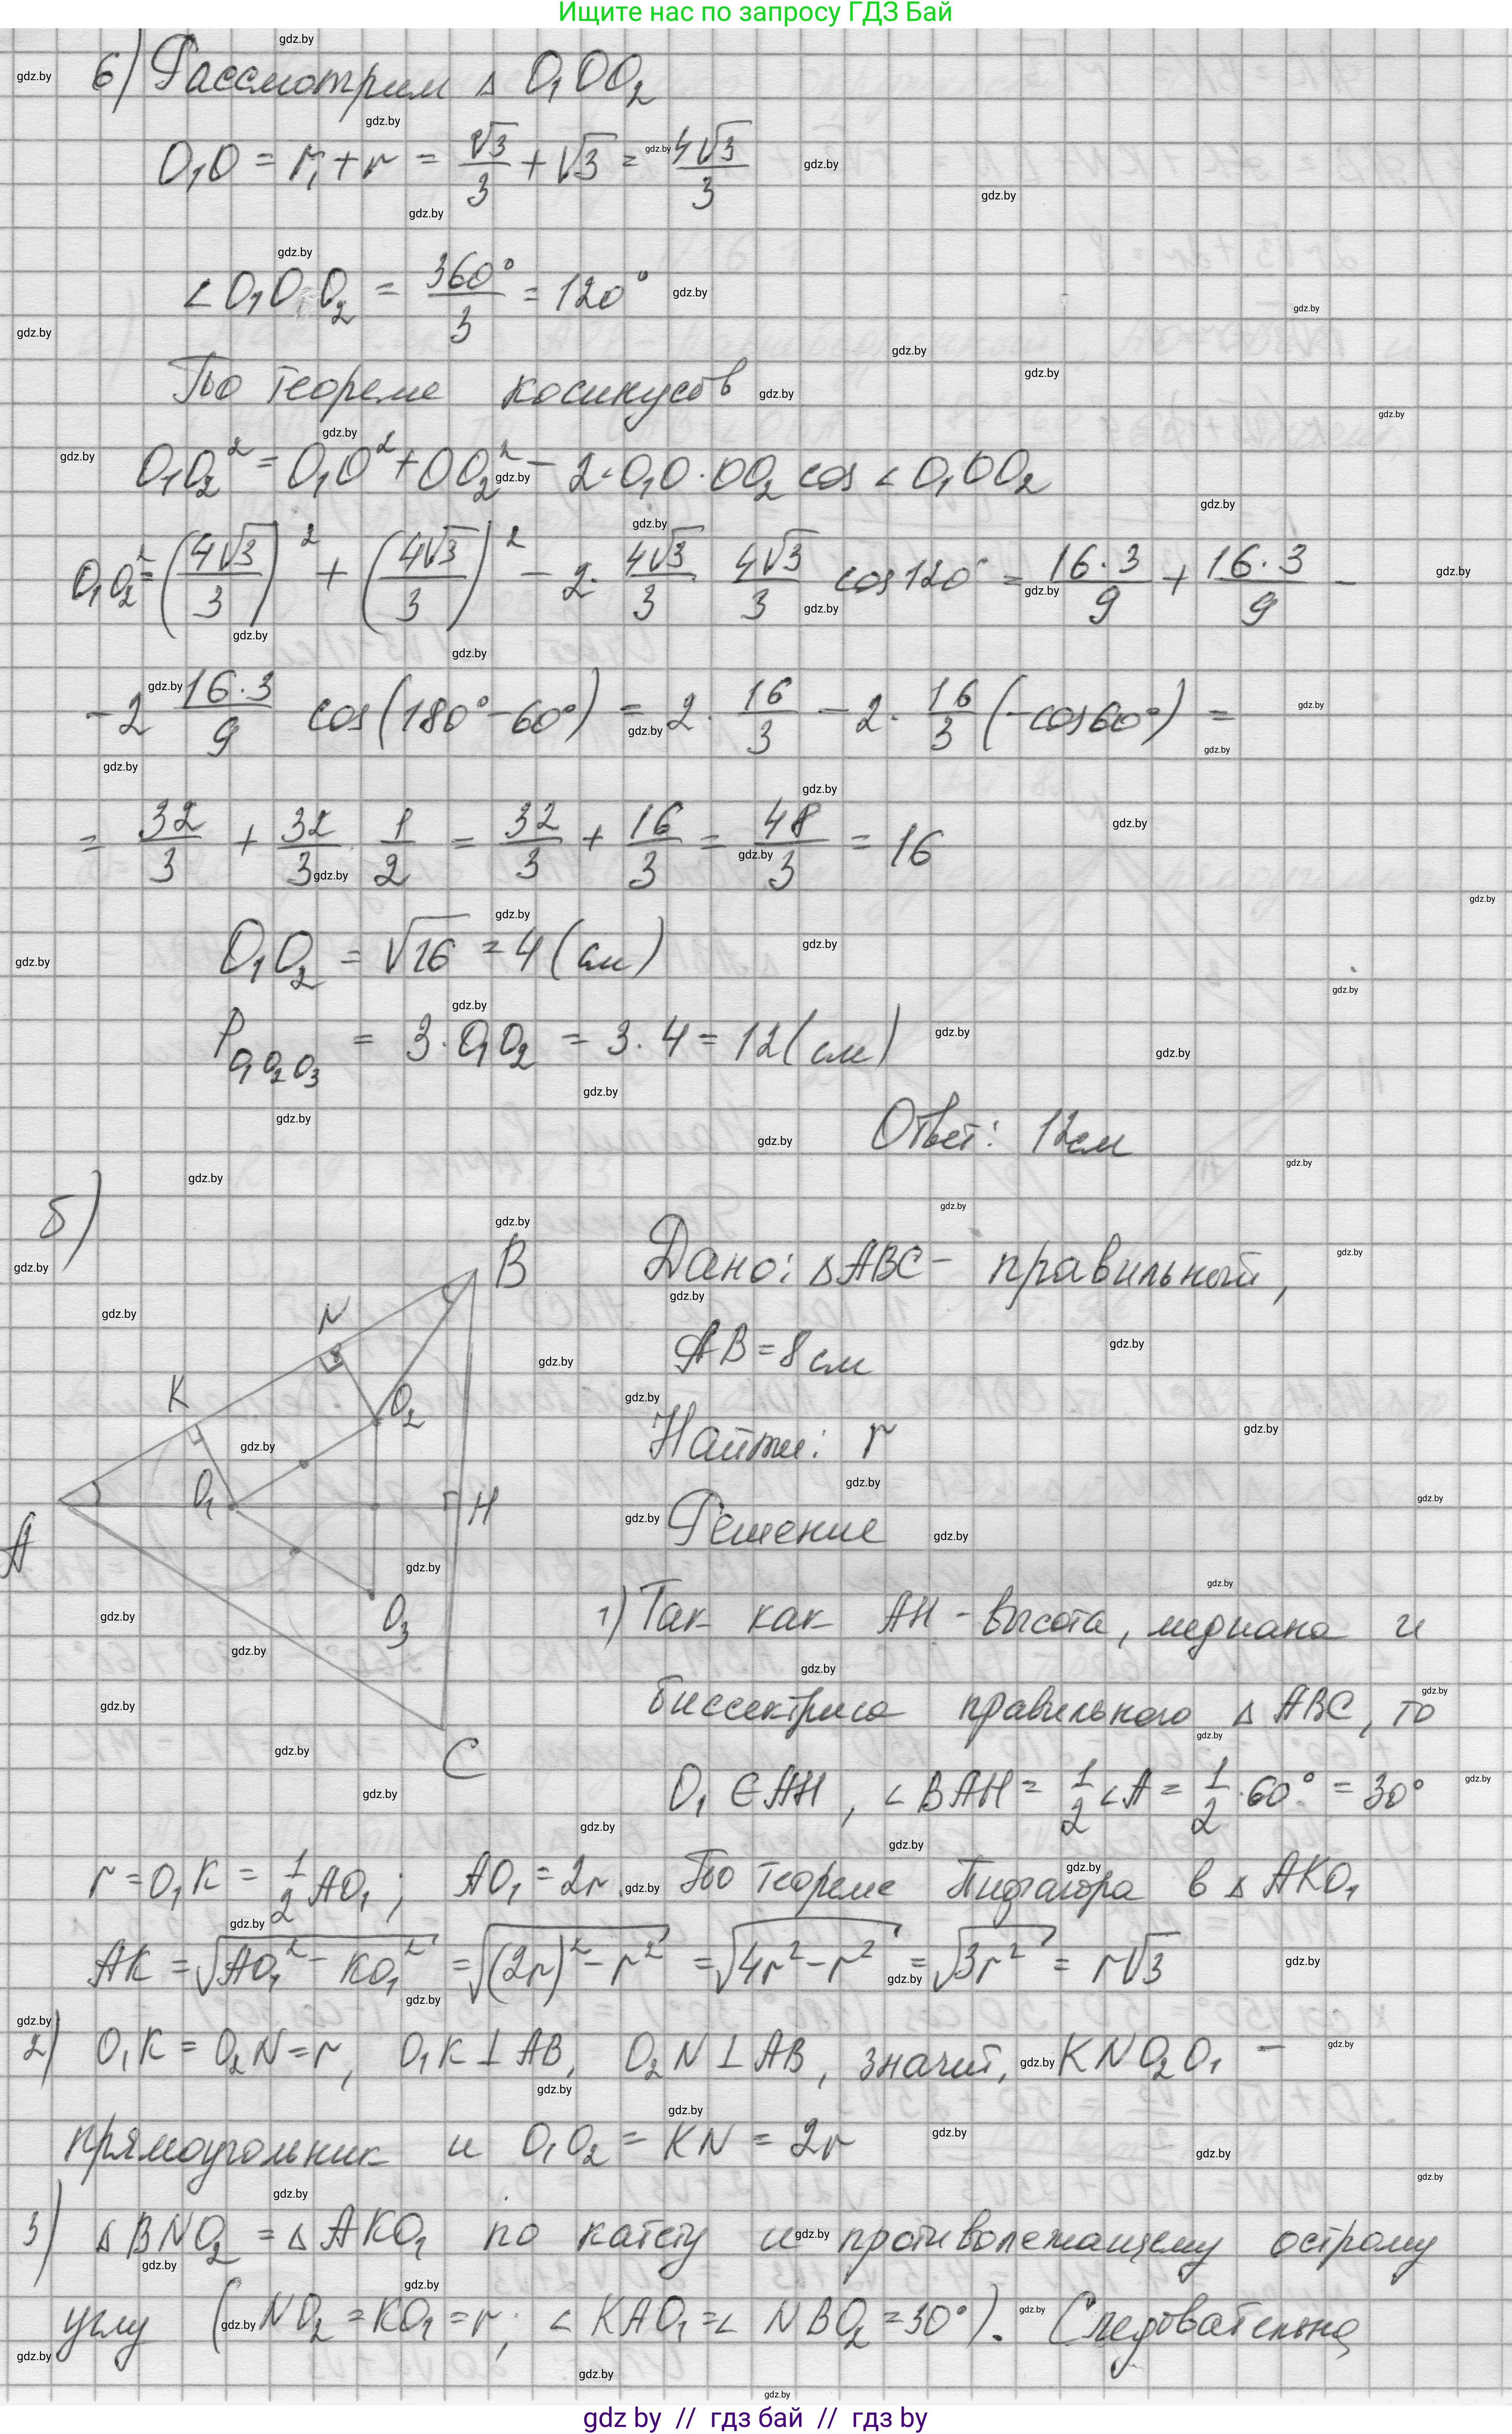 Ищите нас по запросу ГДЗ Бай
6) Рассмотрим △ O₁OO₂
O₁O = r₁ + r = √3/3 + √3 = 4√3/3
∠O₁OO₂ = 360°/3 = 120°
По теореме косинусов
O₁O₂² = O₁O² + OO₂² - 2·O₁O·OO₂ cos ∠O₁OO₂
O₁O₂² = (4√3/3)² + (4√3/3)² - 2· 4√3/3 · 4√3/3 cos120° = 16·3/9 + 16·3/9 -
- 2 16·3/9 cos(180°-60°) = 2· 16/3 - 2· 16/3 (-cos60°) =
= 32/3 + 32/3 · 1/2 = 32/3 + 16/3 = 48/3 = 16
O₁O₂ = √16 = 4 (см)
P O₁O₂O₃ = 3·O₁O₂ = 3·4 = 12 (см)
Ответ: 12см
б)
B
N
K
O₂
O₁
H
A
O₃
C
Дано: △ABC - правильный,
AB = 8 см
Найти: r
Решение
1) Так как AH - высота, медиана и
биссектриса правильного △ ABC, то
O₁ ∈ AH, ∠BAH = 1/2 ∠A = 1/2 · 60° = 30°
r = O₁K = 1/2 AO₁; AO₁ = 2r. По теореме Пифагора в △ AKO₁
AK = √(AO₁² - KO₁²) = √((2r)² - r²) = √(4r² - r²) = √(3r²) = r√3
2) O₁K = O₂N = r, O₁K ⊥ AB, O₂N ⊥ AB, значит, KNO₂O₁ -
прямоугольник и O₁O₂ = KN = 2r
3) △ BNO₂ = △ AKO₁ по катету и противолежащему острому
углу (NO₂ = KO₁ = r; ∠KAO₁ = ∠NBO₂ = 30°). Следовательно,
gdz by // гдз бай // гдз by